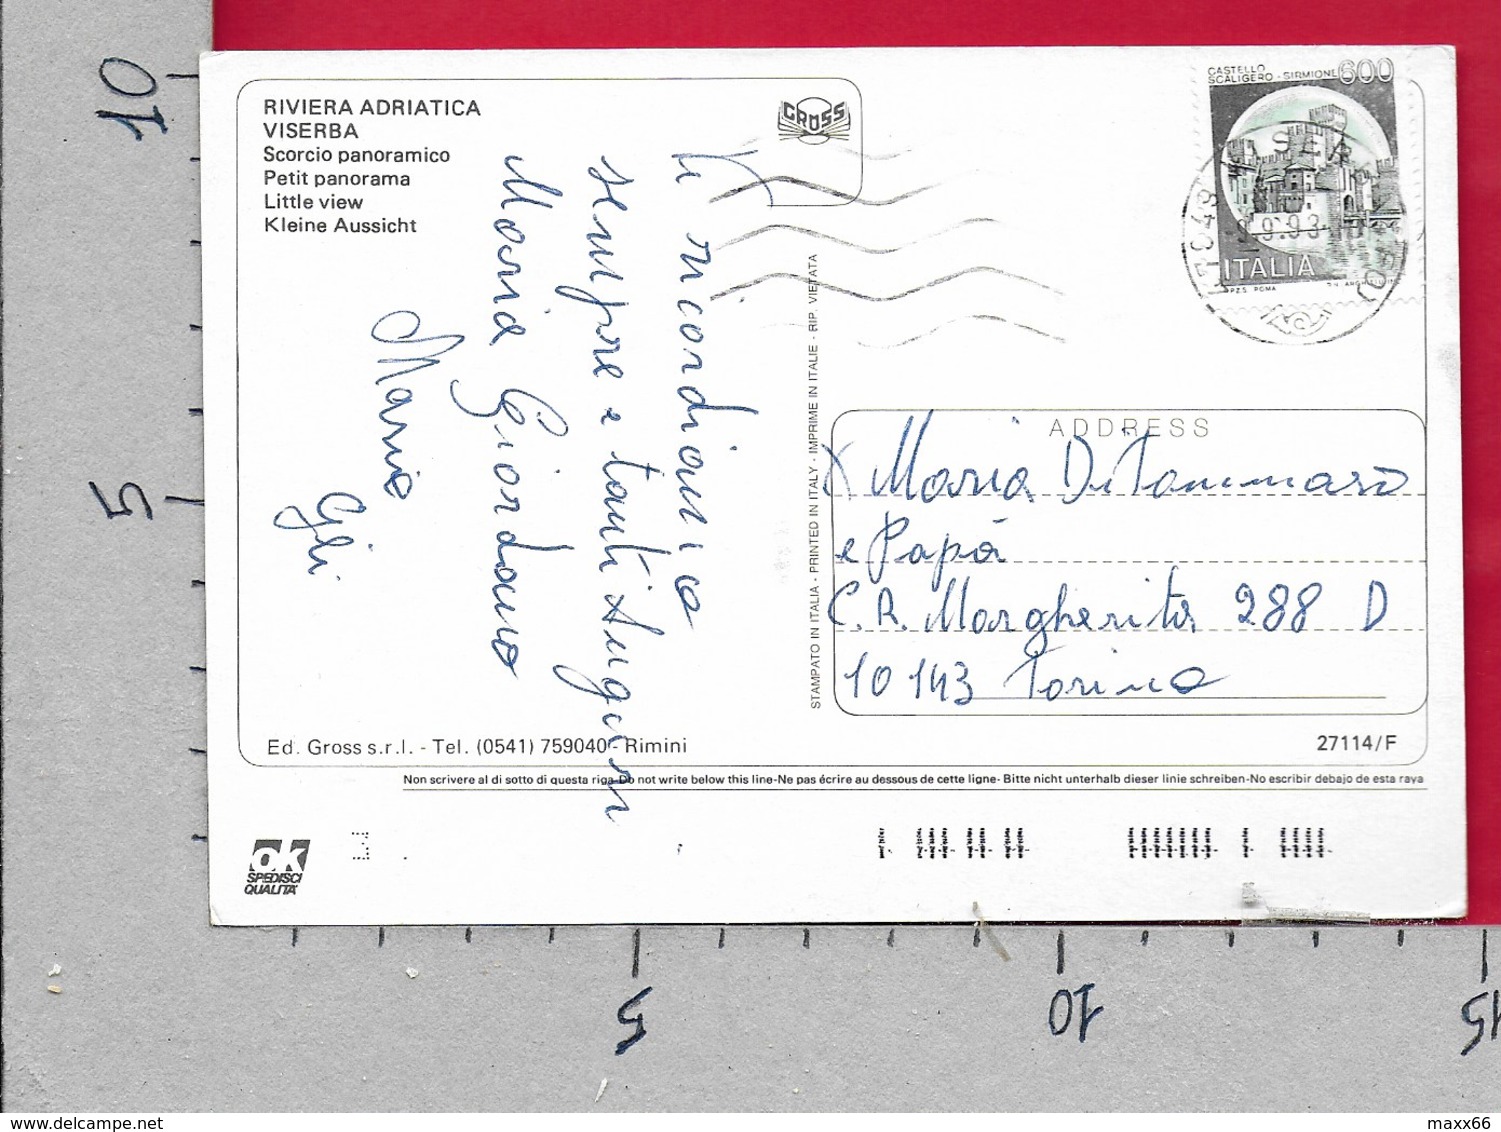 10
5
RIVIERA ADRIATICA
VISERBA
Scorcio panoramico
Petit panorama
Little view
Kleine Aussicht
GROSS
CASTELLO
SCALIGERO - SIRMIONE 600
ITALIA
I.P.Z.S. ROMA
9.9.93
Vi ricordiamo
sempre e tanti Auguri
Maria Giordano
Mario
STAMPATO IN ITALIA - PRINTED IN ITALY - IMPRIME IN ITALIE - RIP. VIETATA
ADDRESS
X Maria Di Tommaso
e Papà
C. R. Margherita 288 D
10143 Torino
Ed. Gross s.r.l. - Tel. (0541) 759040 - Rimini
27114/F
Non scrivere al di sotto di questa riga-Do not write below this line-Ne pas écrire au dessous de cette ligne- Bitte nicht unterhalb dieser linie schreiben-No escribir debajo de esta raya
ok
SPEDISCI
QUALITA'
5
10
15
www.delcampe.net
maxx66